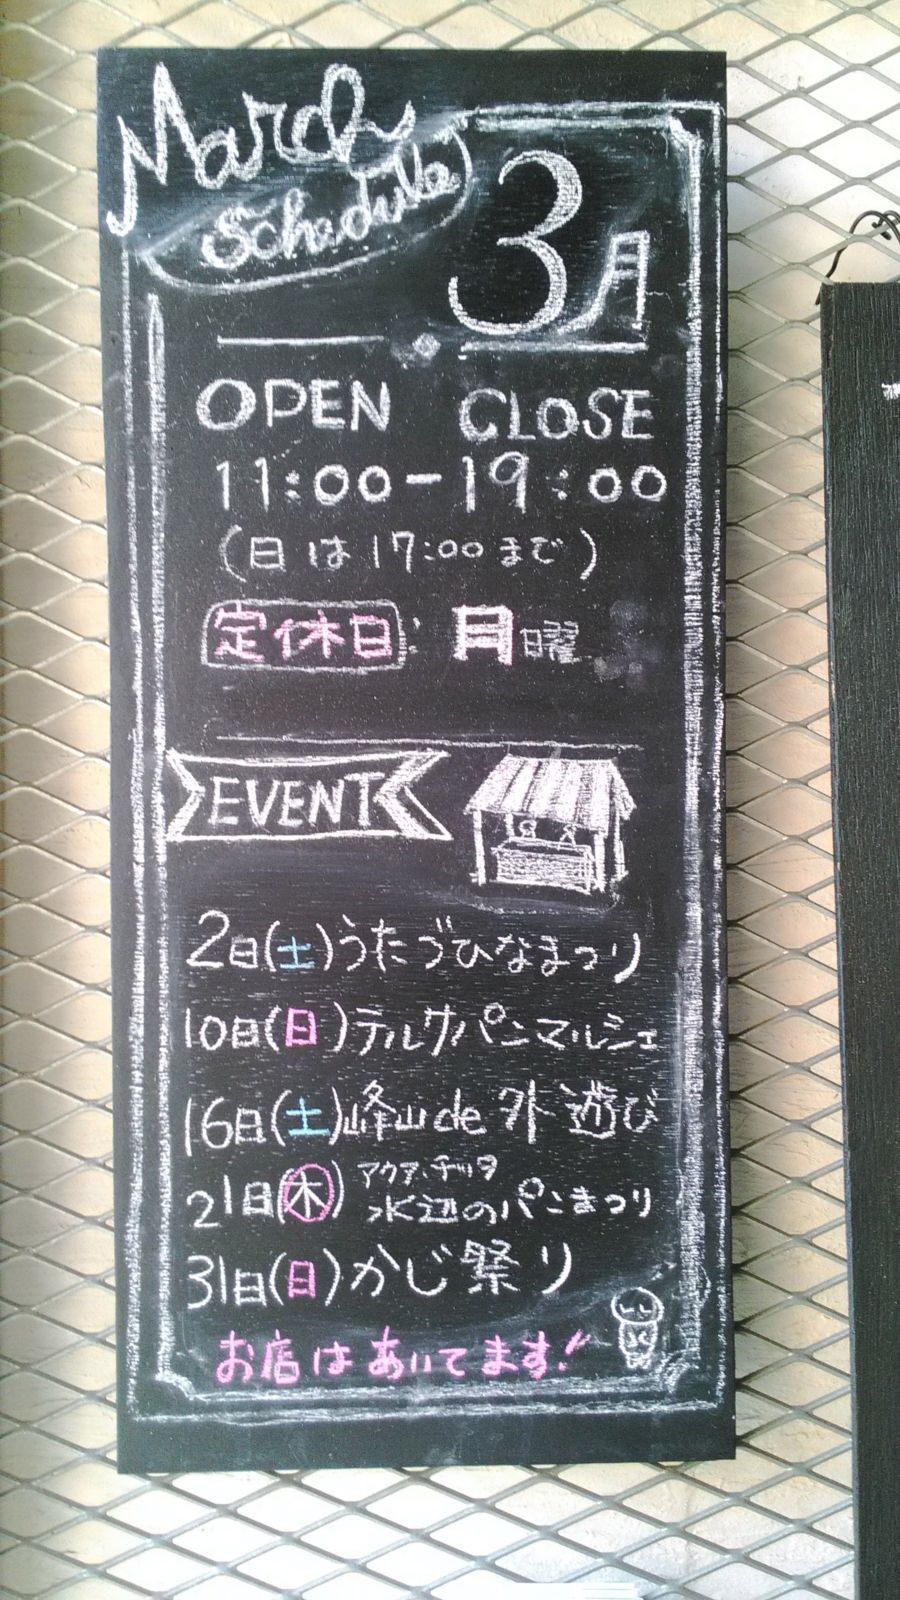 March
Schedule
3月
OPEN CLOSE
11:00-19:00
(日は17:00まで)
定休日:月曜
EVENT
2日(土)うたづひなまつり
10日(日)テルサパンマルシェ
16日(土)峰山de外遊び
アクア・チッタ
21日(木)水辺のパンまつり
31日(日)かじ祭り
お店はあいてます!